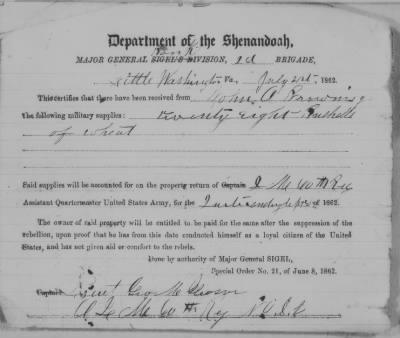 Department of the Shenandoah,
MAJOR GENERAL SIGEL'S DIVISION, 2d BRIGADE,
Little Washington Va July 1862.
This certifies that there have been received from John A Browning
the following military supplies: Twenty eight Bushells
of wheat
Said supplies will be accounted for on the property return of Captain Q M 60th Reg
Assistant Quartermaster United States Army, for the 1862.
The owner of said property will be entitled to be paid for the same after the suppression of the
rebellion, upon proof that he has from this date conducted himself as a loyal citizen of the United
States, and has not given aid or comfort to the rebels.
Done by authority of Major General SIGEL,
Special Order No. 21, of June 8, 1862.
Captain Lieut Geo M
A Q M 60th Reg